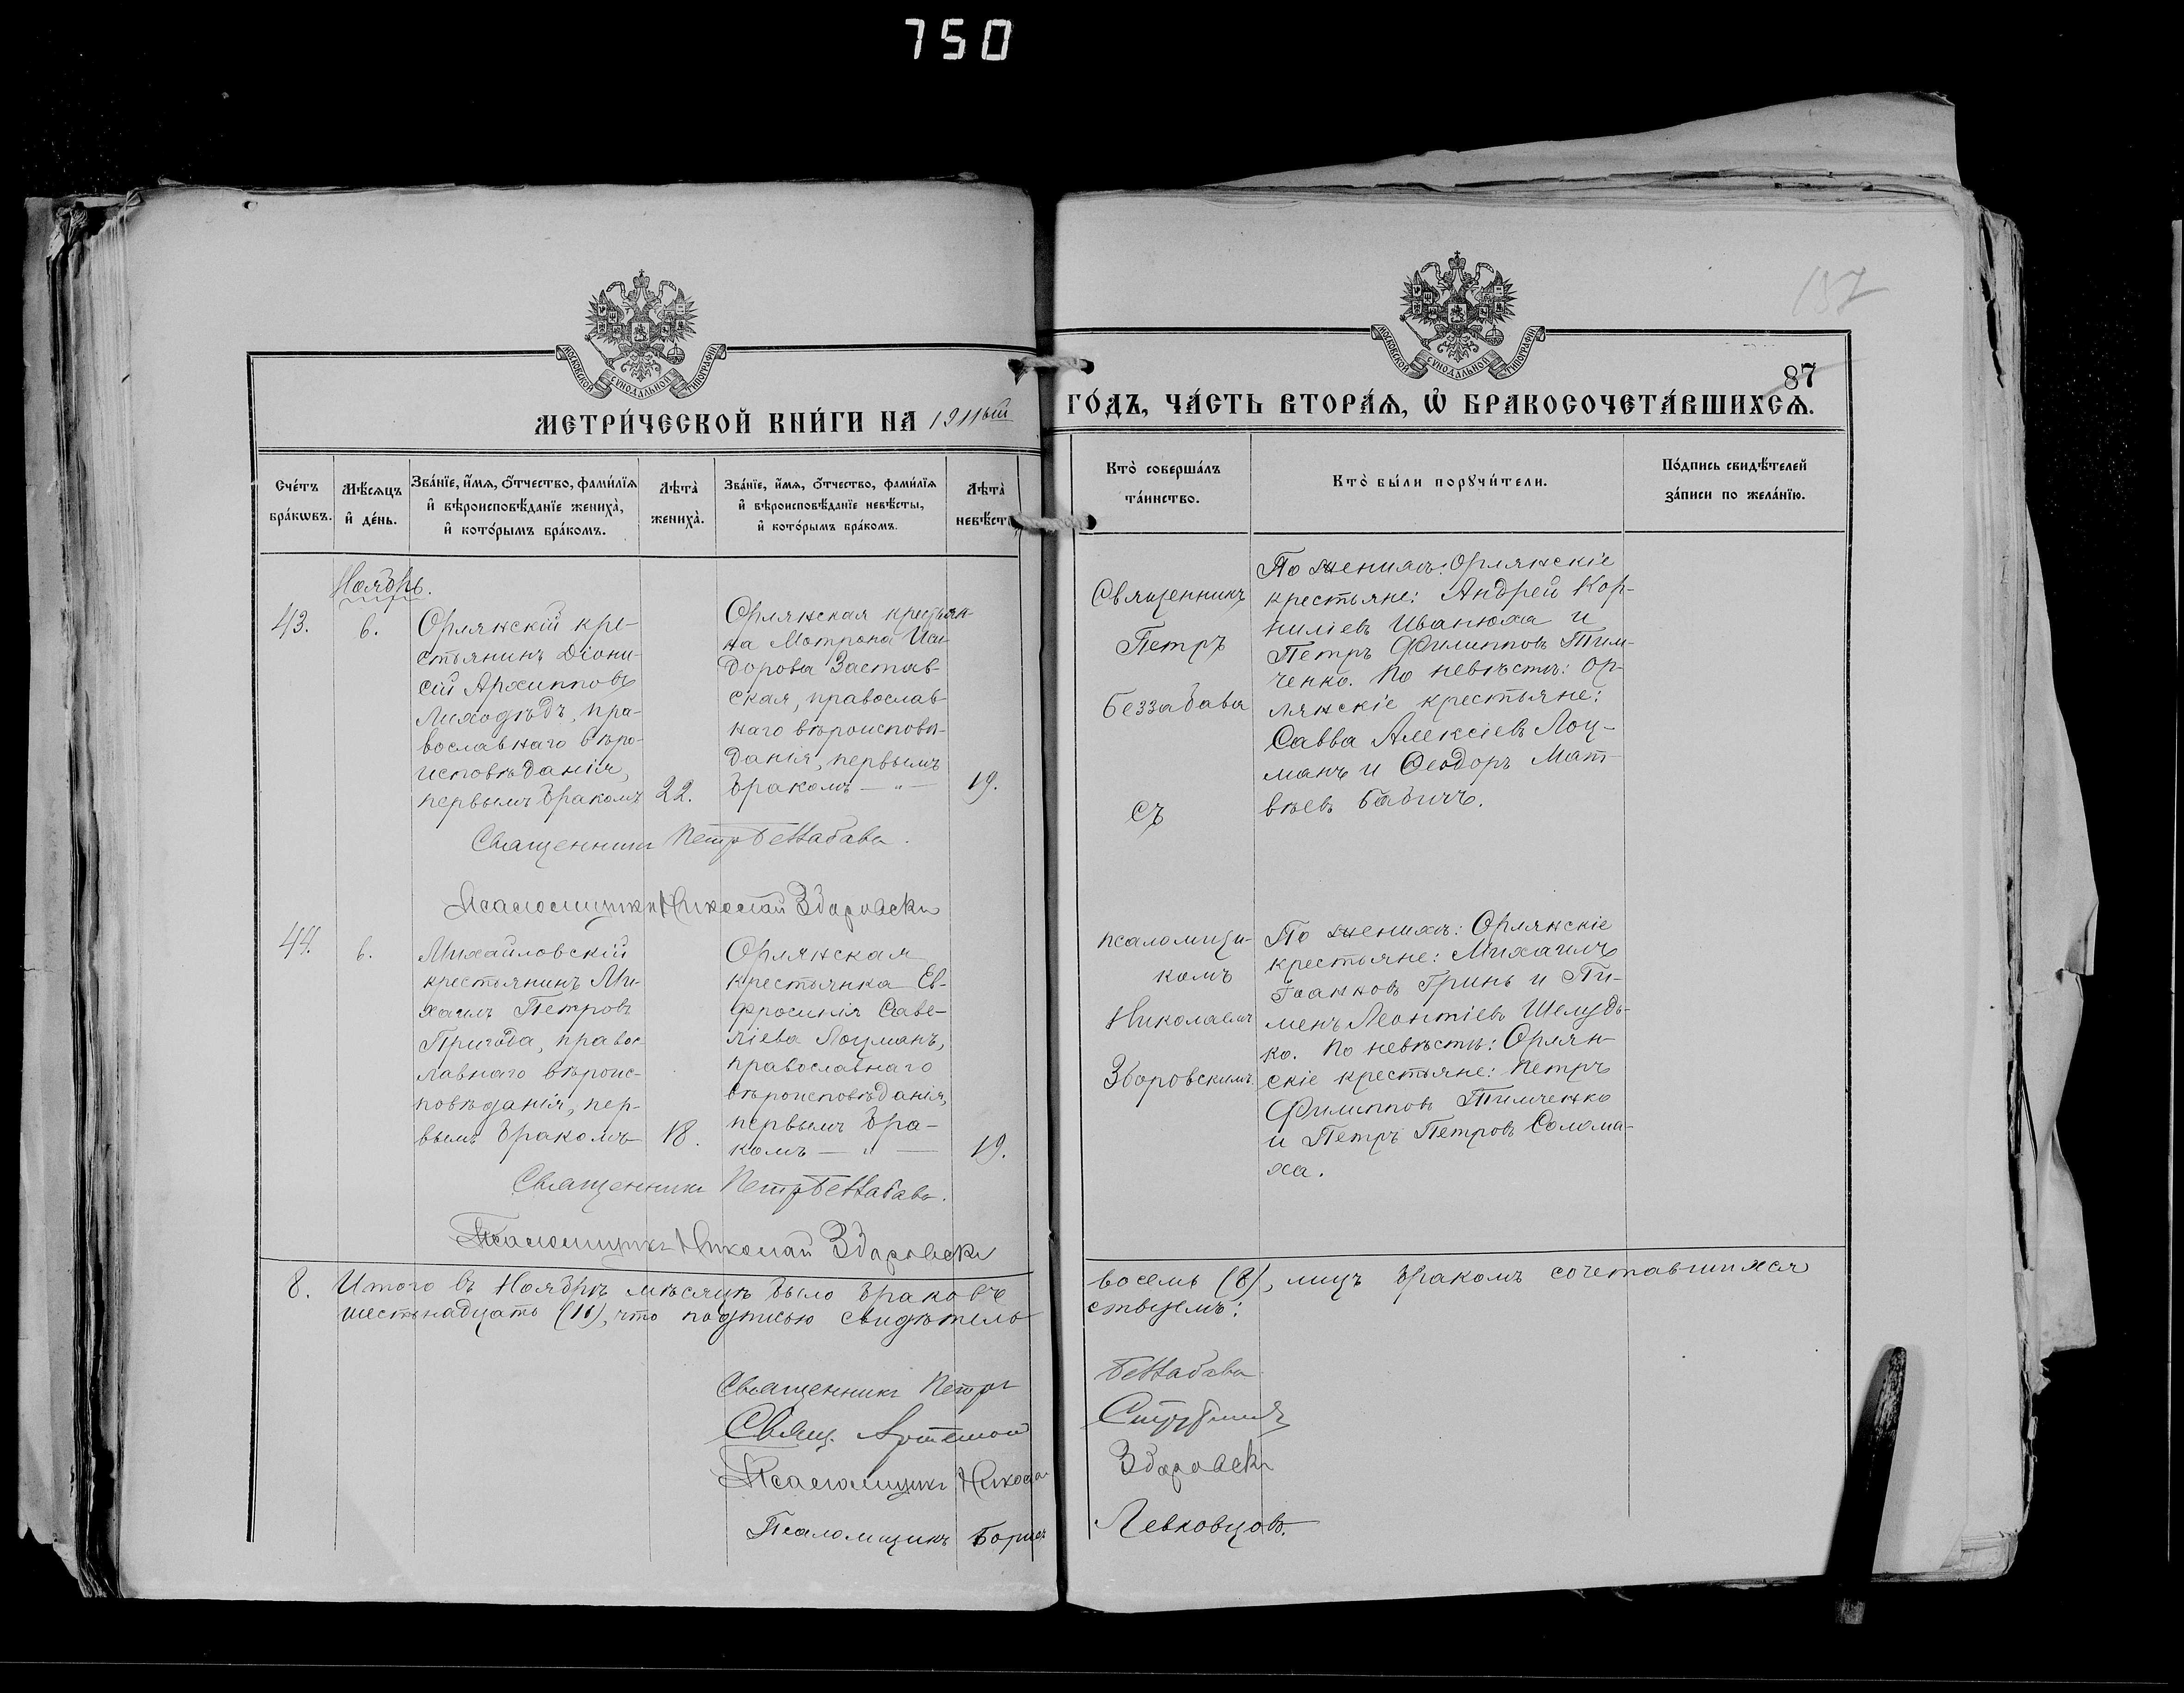 750
137
87
МОСКОВСКОЙ СѴНОДАЛЬНОЙ ТИПОГРАФІИ
МОСКОВСКОЙ СѴНОДАЛЬНОЙ ТИПОГРАФІИ
МЕТРИ́ЧЕСКОЙ КНИ́ГИ НА 1911ый ГО́ДЪ, ЧА́СТЬ ВТОРА́Я, Ѡ҆ БРАКОСОЧЕТА́ВШИХСЯ.
Сче́тъ бра́кѡвъ.
Мѣ́сяцъ и҆ де́нь.
Зва́нїе, и҆́мя, о҆́тчество, фами́лїя
и҆ вѣроисповѣ́данїе жениха̀,
и҆ кото́рымъ бра́комъ.
Лѣта̀ жениха̀.
Зва́нїе, и҆́мя, о҆́тчество, фами́лїя
и҆ вѣроисповѣ́данїе невѣ́сты,
и҆ кото́рымъ бра́комъ.
Лѣта̀ невѣ́ст
Кто̀ соверша́лъ
та́инство.
Кто̀ бы́ли порꙋчи́тели.
По́дпись свидѣ́телей
за́писи по жела́нїю.
Ноябрь.
43.
6.
Орлянскій кре-
стьянинъ Діони-
сій Архипповъ
Лиходѣдъ, пра-
вославнаго вѣро-
исповѣданія,
первымъ бракомъ
22.
Орлянская крестьян-
ка Мотрона Иси-
дорова Застав-
ская, православ-
наго вѣроисповѣ-
данія, первымъ
бракомъ — " —
19.
Священникъ
Петръ
Беззабава
съ
По женихѣ: Орлянскіе
крестьяне: Андрей Кор-
ниліевъ Иванюха и
Петръ Филипповъ Тим-
ченко. По невѣстѣ: Ор-
лянскіе крестьяне:
Савва Алексіевъ Лоц-
манъ и Ѳеодоръ Мат-
вѣевъ Бабичъ.
Священникъ Петръ Беззабава.
Псаломщикъ Николай Зборовскій
44.
6.
Михайловскій
крестьянинъ Ми-
хаилъ Петровъ
Пригода, правос-
лавнаго вѣроис-
повѣданія, пер-
вымъ бракомъ
18.
Орлянская
крестьянка Ев-
фросинія Саве-
ліева Лоцманъ,
православнаго
вѣроисповѣданія,
первымъ бра-
комъ — " —
19.
псаломщи-
комъ
Николаемъ
Зборовскимъ.
По женихѣ: Орлянскіе
крестьяне: Михаилъ
Іоанновъ Гринь и Пи-
менъ Леонтіевъ Шелудь-
ко. По невѣстѣ: Орлян-
скіе крестьяне: Петръ
Филипповъ Тимченко
и Петръ Петровъ Солома-
ха.
Священникъ Петръ Беззабава.
Псаломщикъ Николай Зборовскій
8. Итого въ Ноябрѣ мѣсяцѣ было браковъ восемь (8), лицъ бракомъ сочетавшихся
шестьнадцать (16), что подписью свидѣтель ствуемъ:
Священникъ Петръ Беззабава
Свящ. Артемій
Псаломщикъ Николай Зборовскій
Псаломщикъ Борисъ Левковцовъ.